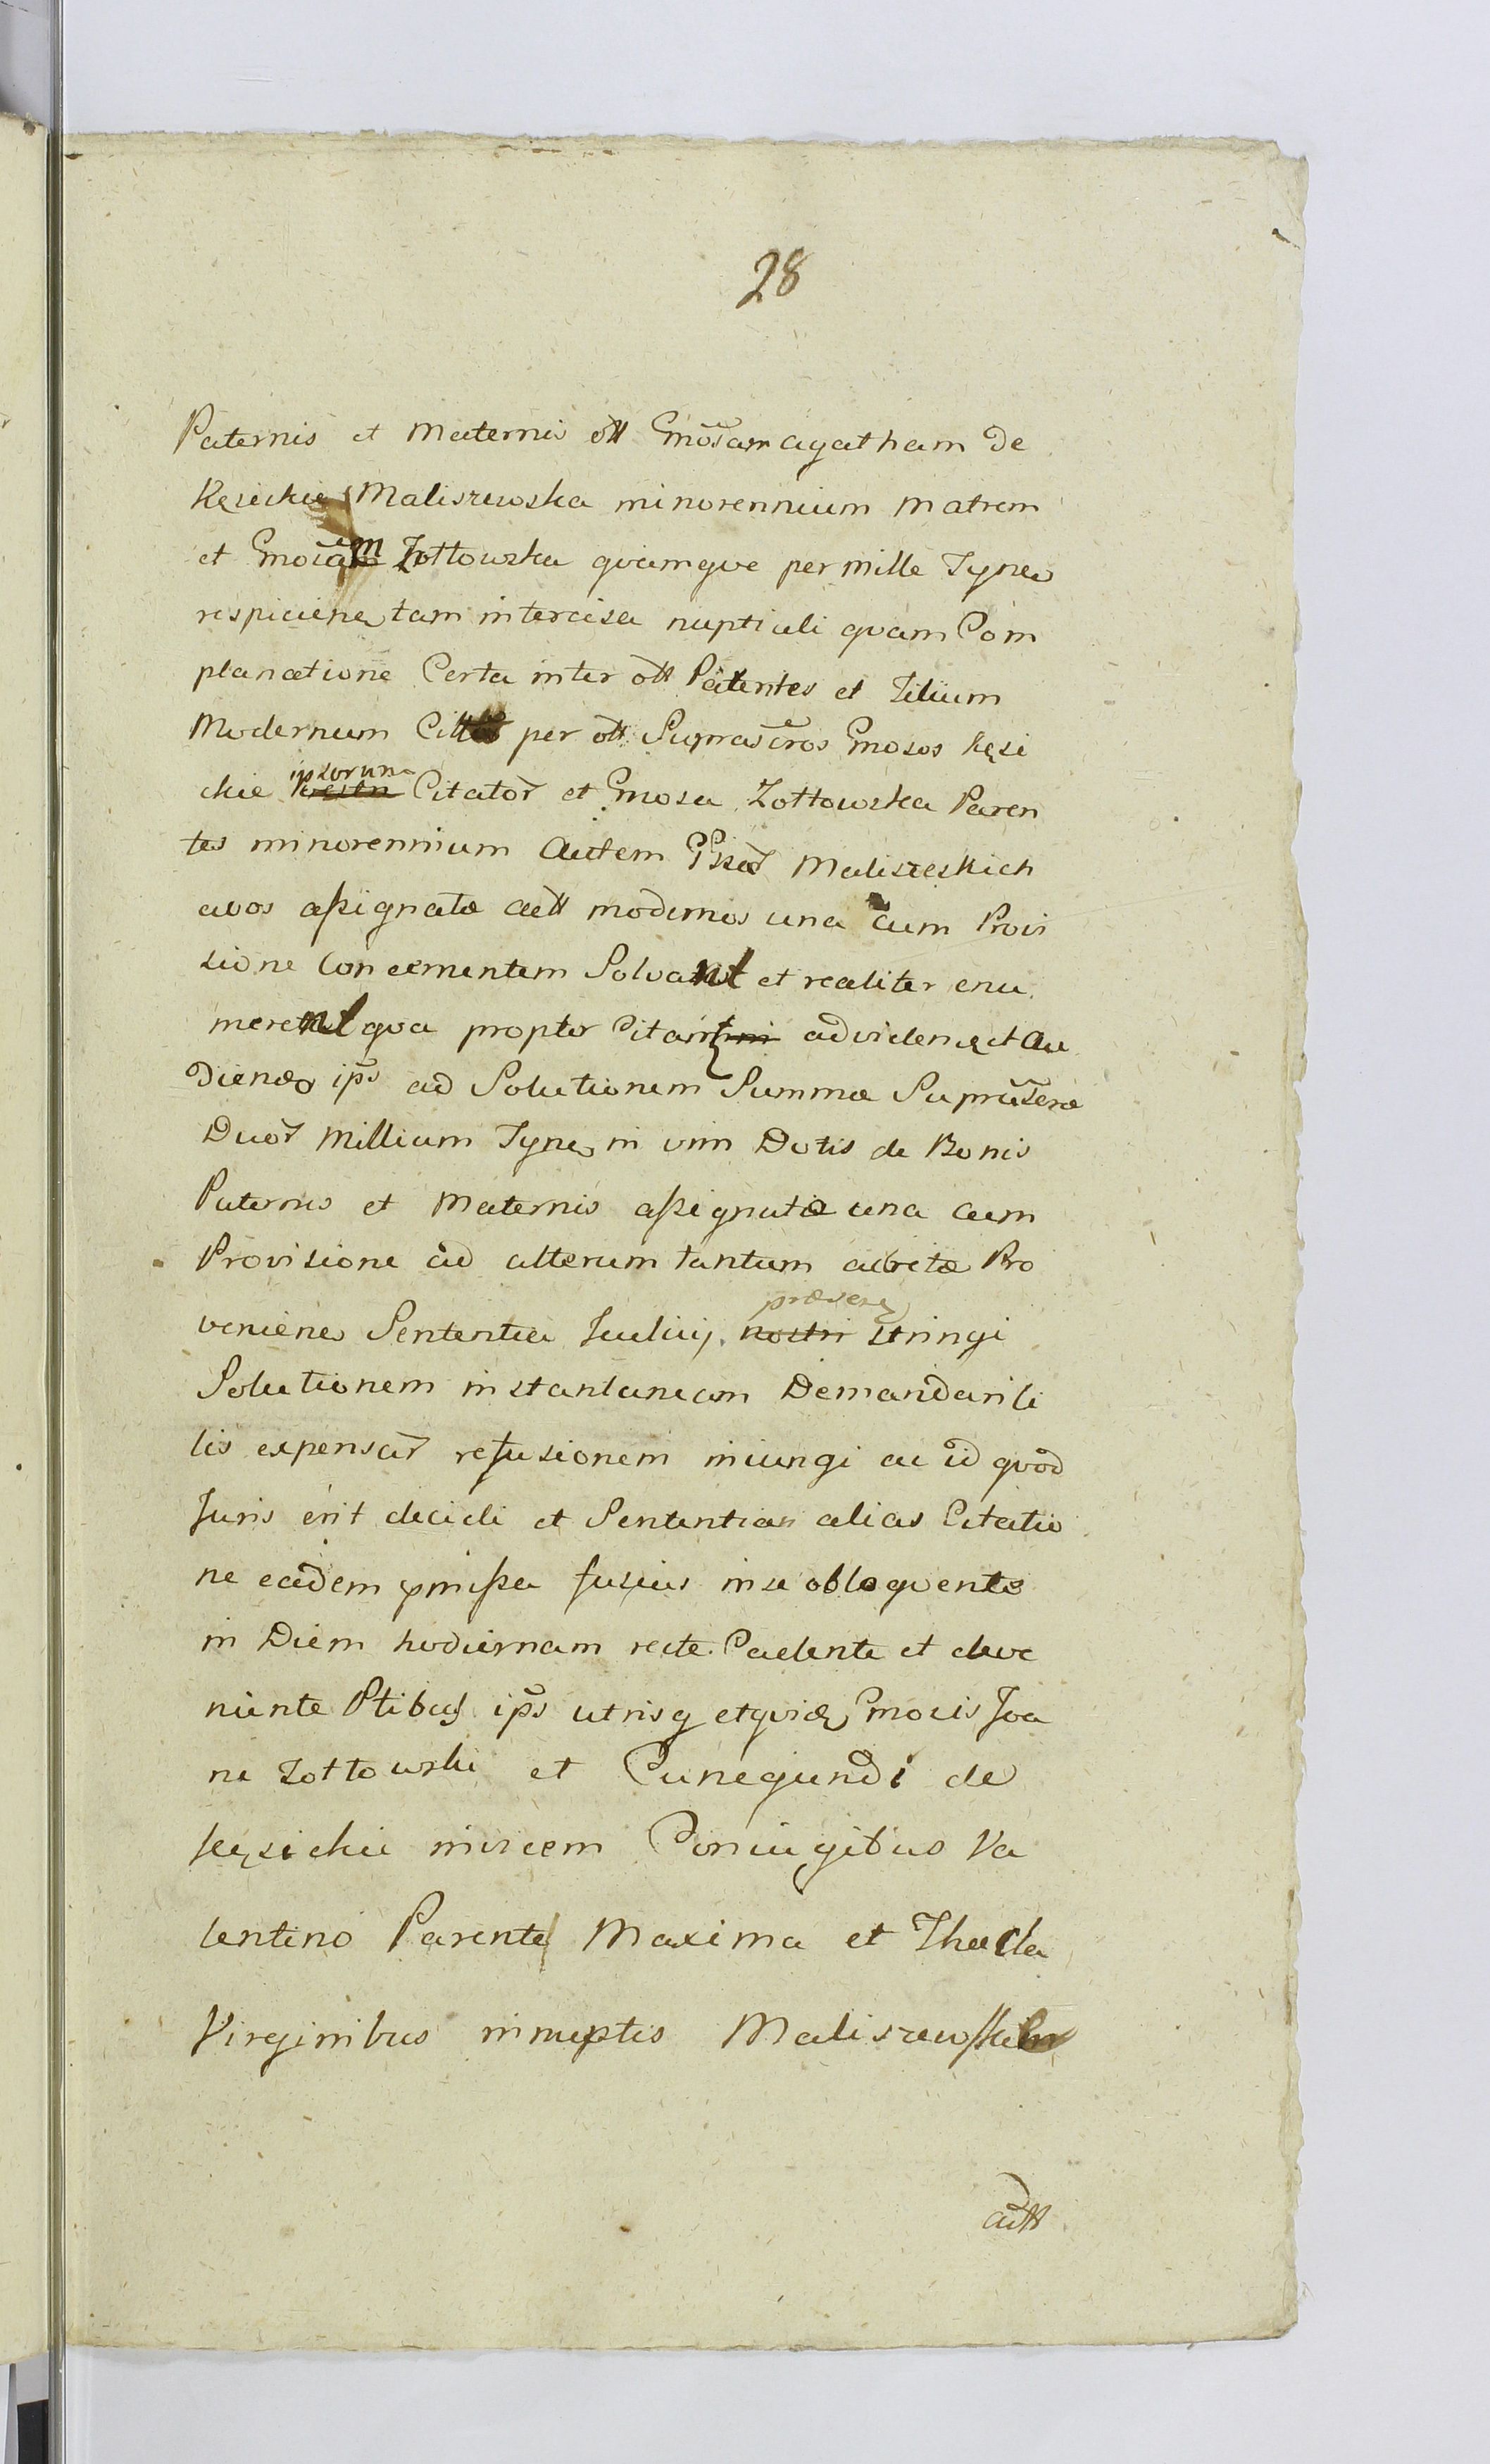 28
Paternis et Maternis ött Gnosam Agatham de
Kęsickie Maliszewska minorennium Matrem
et Gnosam Zołtowska quamque per mille Tynes
respiciens tam intercisa nuptiali quam Com
planatione Certa inter ött Parentes et Filium
Modernum per ött Suprascros Gnosos Kęsi
ckie ipsorum Citator et Gnosa Zołtowska Paren
tes minorennium Autem Maliszeskich
avos assignatæ aëtt modernos una cum Provi
sione concernentem Solvant et realiter enu
merent qua propter Citantr ad viden et Au
diend ips ad Solutionem Summæ Suprascræ
Duor Millium Tynes in vim Dotis de Bonis
Paternis et Maternis assignatæ una cum
Provisione ad alterum tantum accretæ Pro
veniens Sententia Iudicij nostri præsens stringi
Solutionem instantaneam Demandari Li
tis expensar refusionem iniungi ac id quod
Juris erit decidi et Sententiari alias Citatio
ne eadem præmissa fusius in se obloquente
in Diem hodiernam recte Cadente et deve
niente Ptibus ips utrisq et quid Gnosis Joa
ne Zołtowski et Cunegundi de
Kęsickie invicem Coniugibus Va
lentino Parente Maxima et Thecla
Virginibus innuptis Maliszewskie
aëtt